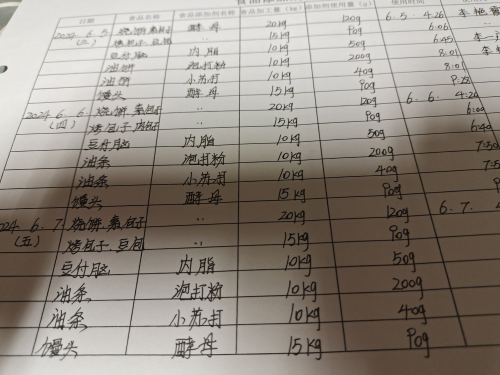 日期 食品名称 食品添加剂名称 食品加工量(kg) 添加剂使用量(g) 使用时间
2024 6. 5. 烧饼.素包子 酵母 20kg 120g 6. 5. 4:26
(三) 烤包子.豆包 〃 15kg 90g 6:06
豆付脑 内脂 10kg 50g 6:45
油饼 泡打粉 10kg 200g 8:01
油饼 小苏打 10kg 40g 8:01
馒头 酵母 15kg 90g
2024 6. 6. 烧饼.素包子 〃 20kg 120g 6. 6. 4:20
(四) 烤包子.肉包子 〃 15kg 90g
豆付脑 内脂 10kg 50g 6:40
油条 泡打粉 10kg 200g
油条 小苏打 10kg 40g
馒头 酵母 15kg 90g
2024 6. 7. 烧饼.素包子 〃 20kg 120g 6. 7. 4
(五) 烤包子.豆包 〃 15kg 90g
豆付脑 内脂 10kg 50g
油条 泡打粉 10kg 200g
油条 小苏打 10kg 40g
馒头 酵母 15kg 90g